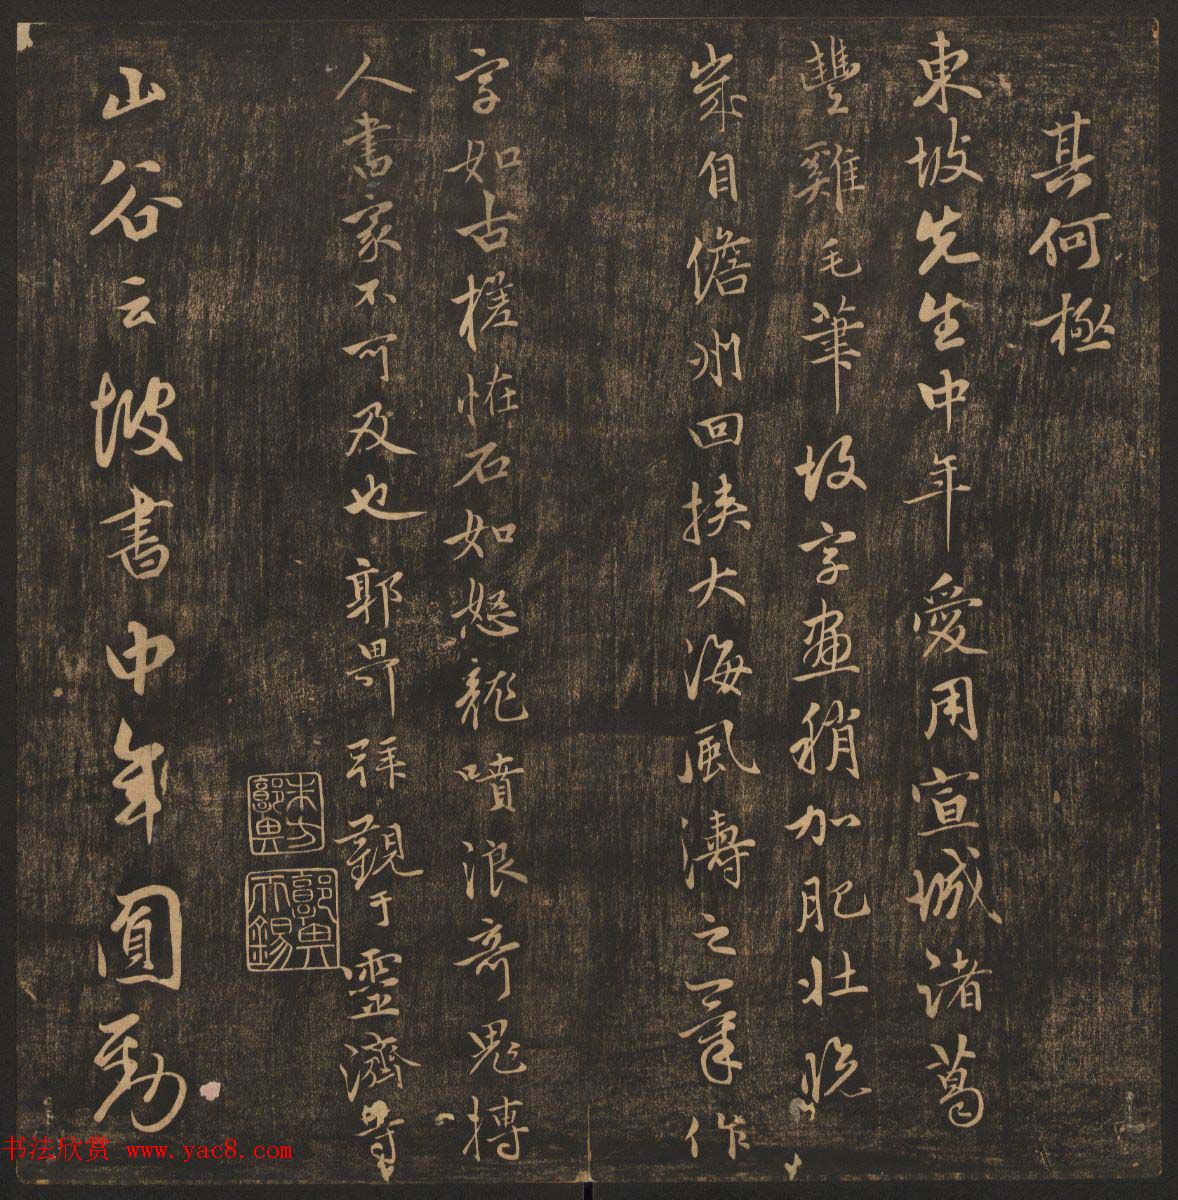 其何極
東坡先生中年愛用宣城諸葛
豐雞毛筆故字畫稍加肥壯晚
歲自儋州回挾大海風濤之氣作
字如古槎怪石如怒龍噴浪奇鬼搏
人書家不可及也郭畀拜觀于靈濟寺
山谷云坡書中年圓勁
书法欣赏 www.yac8.com